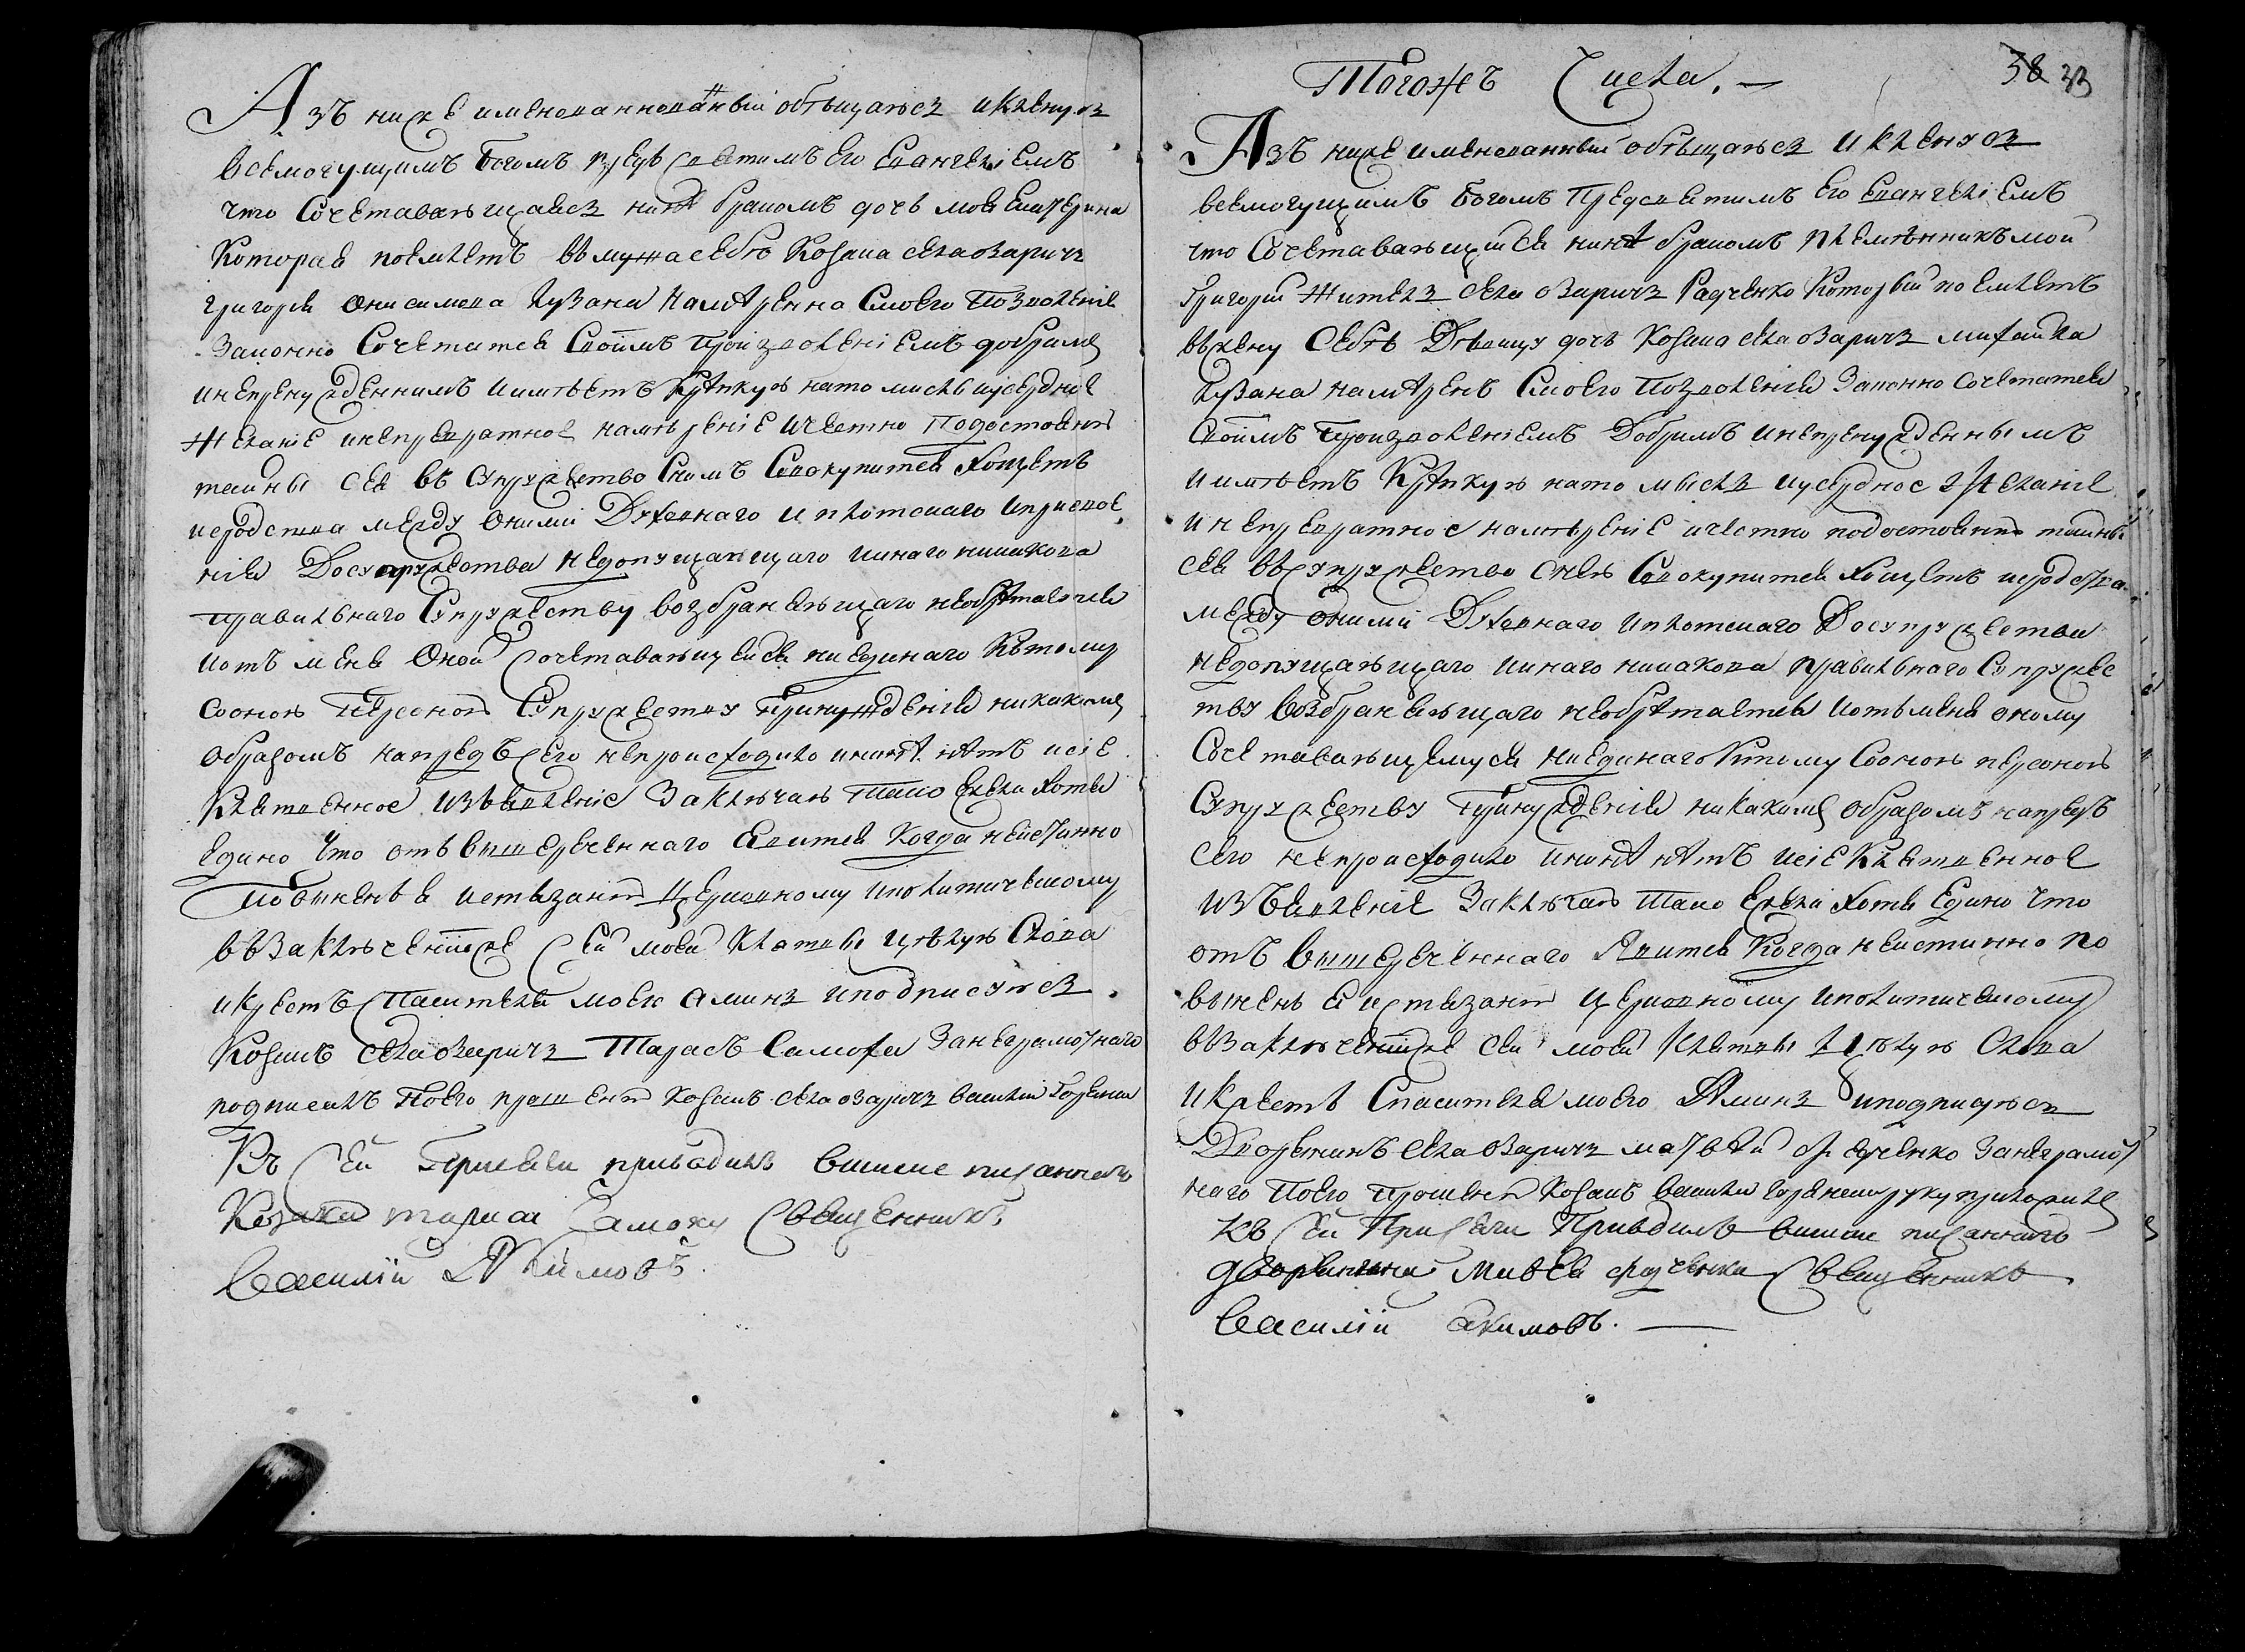 Азъ ниже именованнованный обѣщаюсь и кленусь
всемогущимъ Богомъ предъ святимъ Его Евангелиемъ
что Сочетавающаясь нинѣ бракомъ дочь моя Екатерина
Которая поемлетъ въ мужа себѣ Козака села Озаричь
григория Онисимова Кузана намѣренна Смоего Позволение
Законно Сочетатся Своимъ Произволениемъ добримъ
инепренужденнимъ иимѣетъ Крѣпкую нато мисль иусердное
Желание инепревратное намѣрение ичестно Подостоянию
таины сея въ Супружество Снимъ Совокупится Хощетъ
иеродства между Оними Духовнаго иплотскаго иприсвое
ния Досупружества недопущающаго иинаго никакова
правилнаго Супружеству возбраняющаго необрѣтается
иотъ меня Оной Сочетавающейся ниединаго Кътому
Сооною Персоною Супружеству Принуждения никакимъ
образомъ напредъ сего непроисходило ининѣ нѣтъ исие
Клятвенное изъявление Заключаю Тако Ежели Хотя
едино что отъ вишереченнаго Явится Когда неистинно
повиненъ я истязанию Церковному иполитическому
въЗаключение же Сей моей Клятвы цѣлую Слова
икрестъ Спасителя моего аминь иподписуюсь
Козакъ села Озаричь Тарасъ Самоха Занеграмотнаго
подписалъ Поего прошению Козакъ села озаричь василий Горяники
Къ Сей Присяги приводилъ вишше писаннаго
Козака тараса Самоху Священникъ
Василій Якимовъ.
Тогожъ Числа. —
38 33
Азъ ниже именованный обѣщаюсь и кленусь
всемогущимъ Богомъ Предсвятимъ Его Евангелиемъ
что Сочетавающийся нинѣ бракомъ племѣнникъ мой
Григорий Житель села Озаричь Радченко Который поемлетъ
въжену Себѣ Дѣвицу дочь Козака села озаричь михайла
Кузана намѣренъ Смоего Позволения Законно сочетатся
Своимъ Произволениемъ Добримъ инепренужденнымъ
иимѣетъ Крѣпкую нато мысль иусердное Желание
инепревратное намѣрение ичестно подостоянию таины
сея въ Супружество снею Совокупится Хощетъ иеродства
между оними Духовнаго иплотскаго Досупружества
недопущающаго иинаго никакова правилнаго Супруже
тву возбраняющаго необрѣтается иотъ меня оному
Сочетавающемуся ниединаго Ктому Сооною персоною
Супружеству Принуждения никакимъ образомъ напредъ
сего непроисходило ининѣ нѣтъ исие Клятвенное
изъявление Заключаю Тако Ежели Хотя Едино что
отъ вишереченнаго Явится Когда неистинно по
виненъ я истязанию церковному иполитическому
въЗаключение же сей моей Клятвы Цѣлую Слова
и Крестъ Спасителя моего Аминь иподписуюсь
Дворянинъ села Озаричь матвѣй Радченко Занеграмот
наго Поего Прошению Козакъ василий горяники руку приложилъ
Къ Сей Присяги Приводилъ вишше писаннаго
дворянина Мавѣя Радченка Священникъ
Василій Якимовъ. —